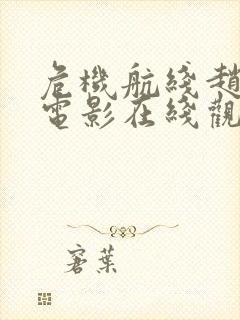 危機航綫趙
電影在綫觀
窨葉